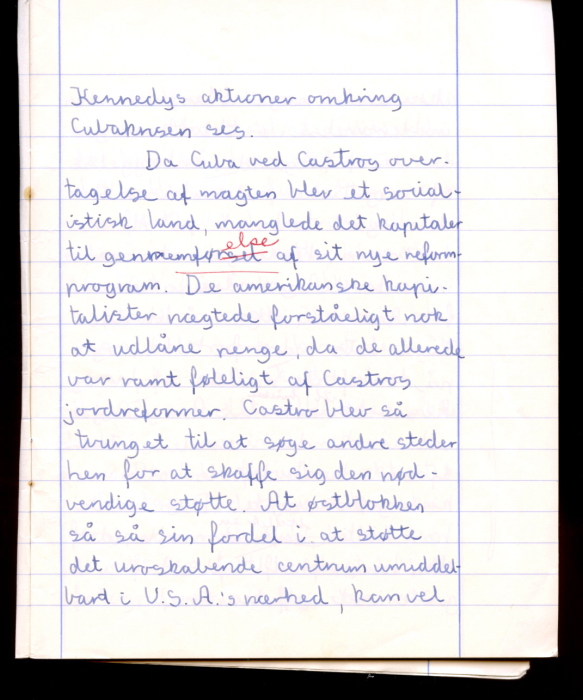 Kennedys aktioner omkring
Cubakrisen ses.
Da Cuba ved Castros over-
tagelse af magten blev et social-
istisk land, manglede det kapitaler
else
til gennemførsel af sit nye reform-
program. De amerikanske kapi-
talister nægtede forståeligt nok
at udlåne penge, da de allerede
var ramt føleligt af Castros
jordreformer. Castro blev så
tvunget til at søge andre steder
hen for at skaffe sig den nød-
vendige støtte. At østblokken
så så sin fordel i at støtte
det uroskabende centrum umiddel-
bart i U.S.A.'s nærhed, kan vel